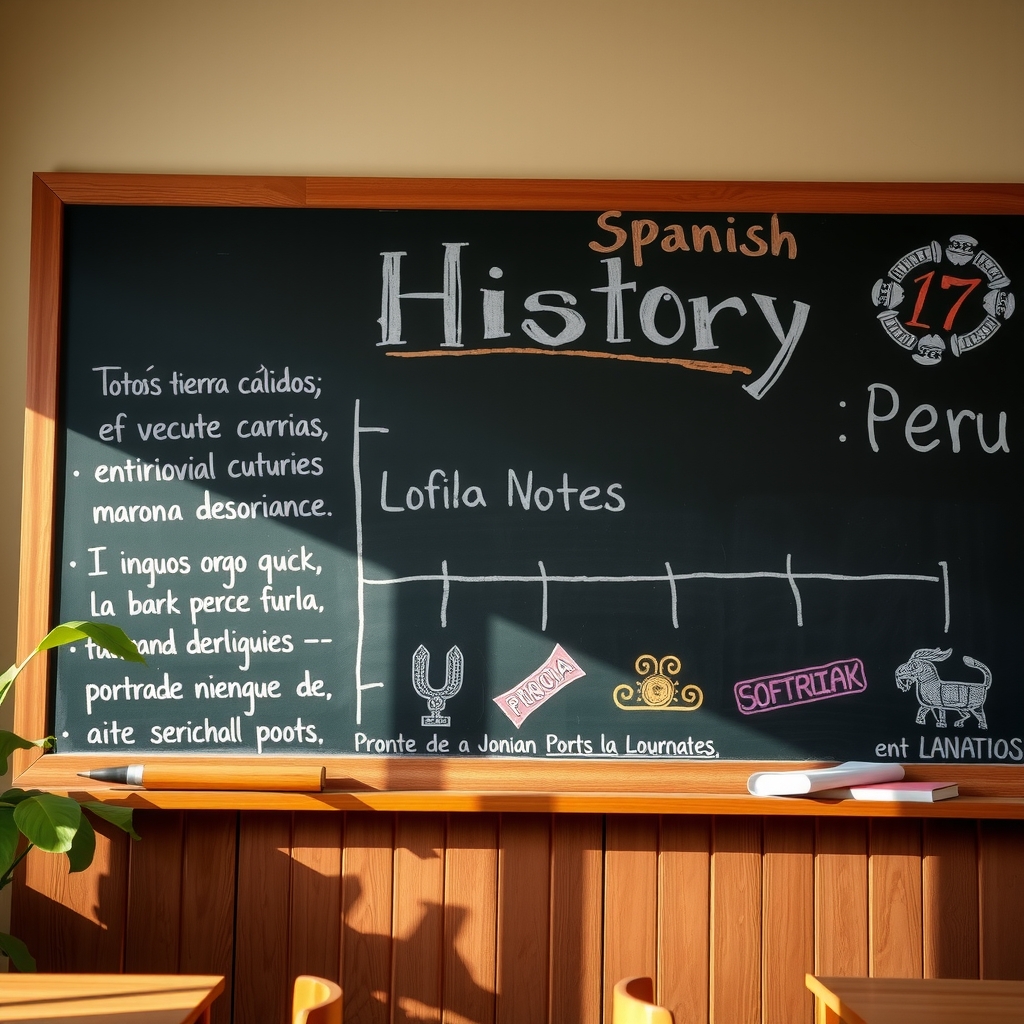 Spanish
History
17
: Peru
Totoś tierra cálidos;
ef vecute carrias,
· entiriovial cuturies
marona desoriance.
Lofila Notes
· I inguos orgo quck,
La bark perce furla,
derliguies --
portrade niengue de,
· aite serichall poots.
SOFTRLIAK
Pronte de a Jonian Ports la Lournates.
ent LANATIOS